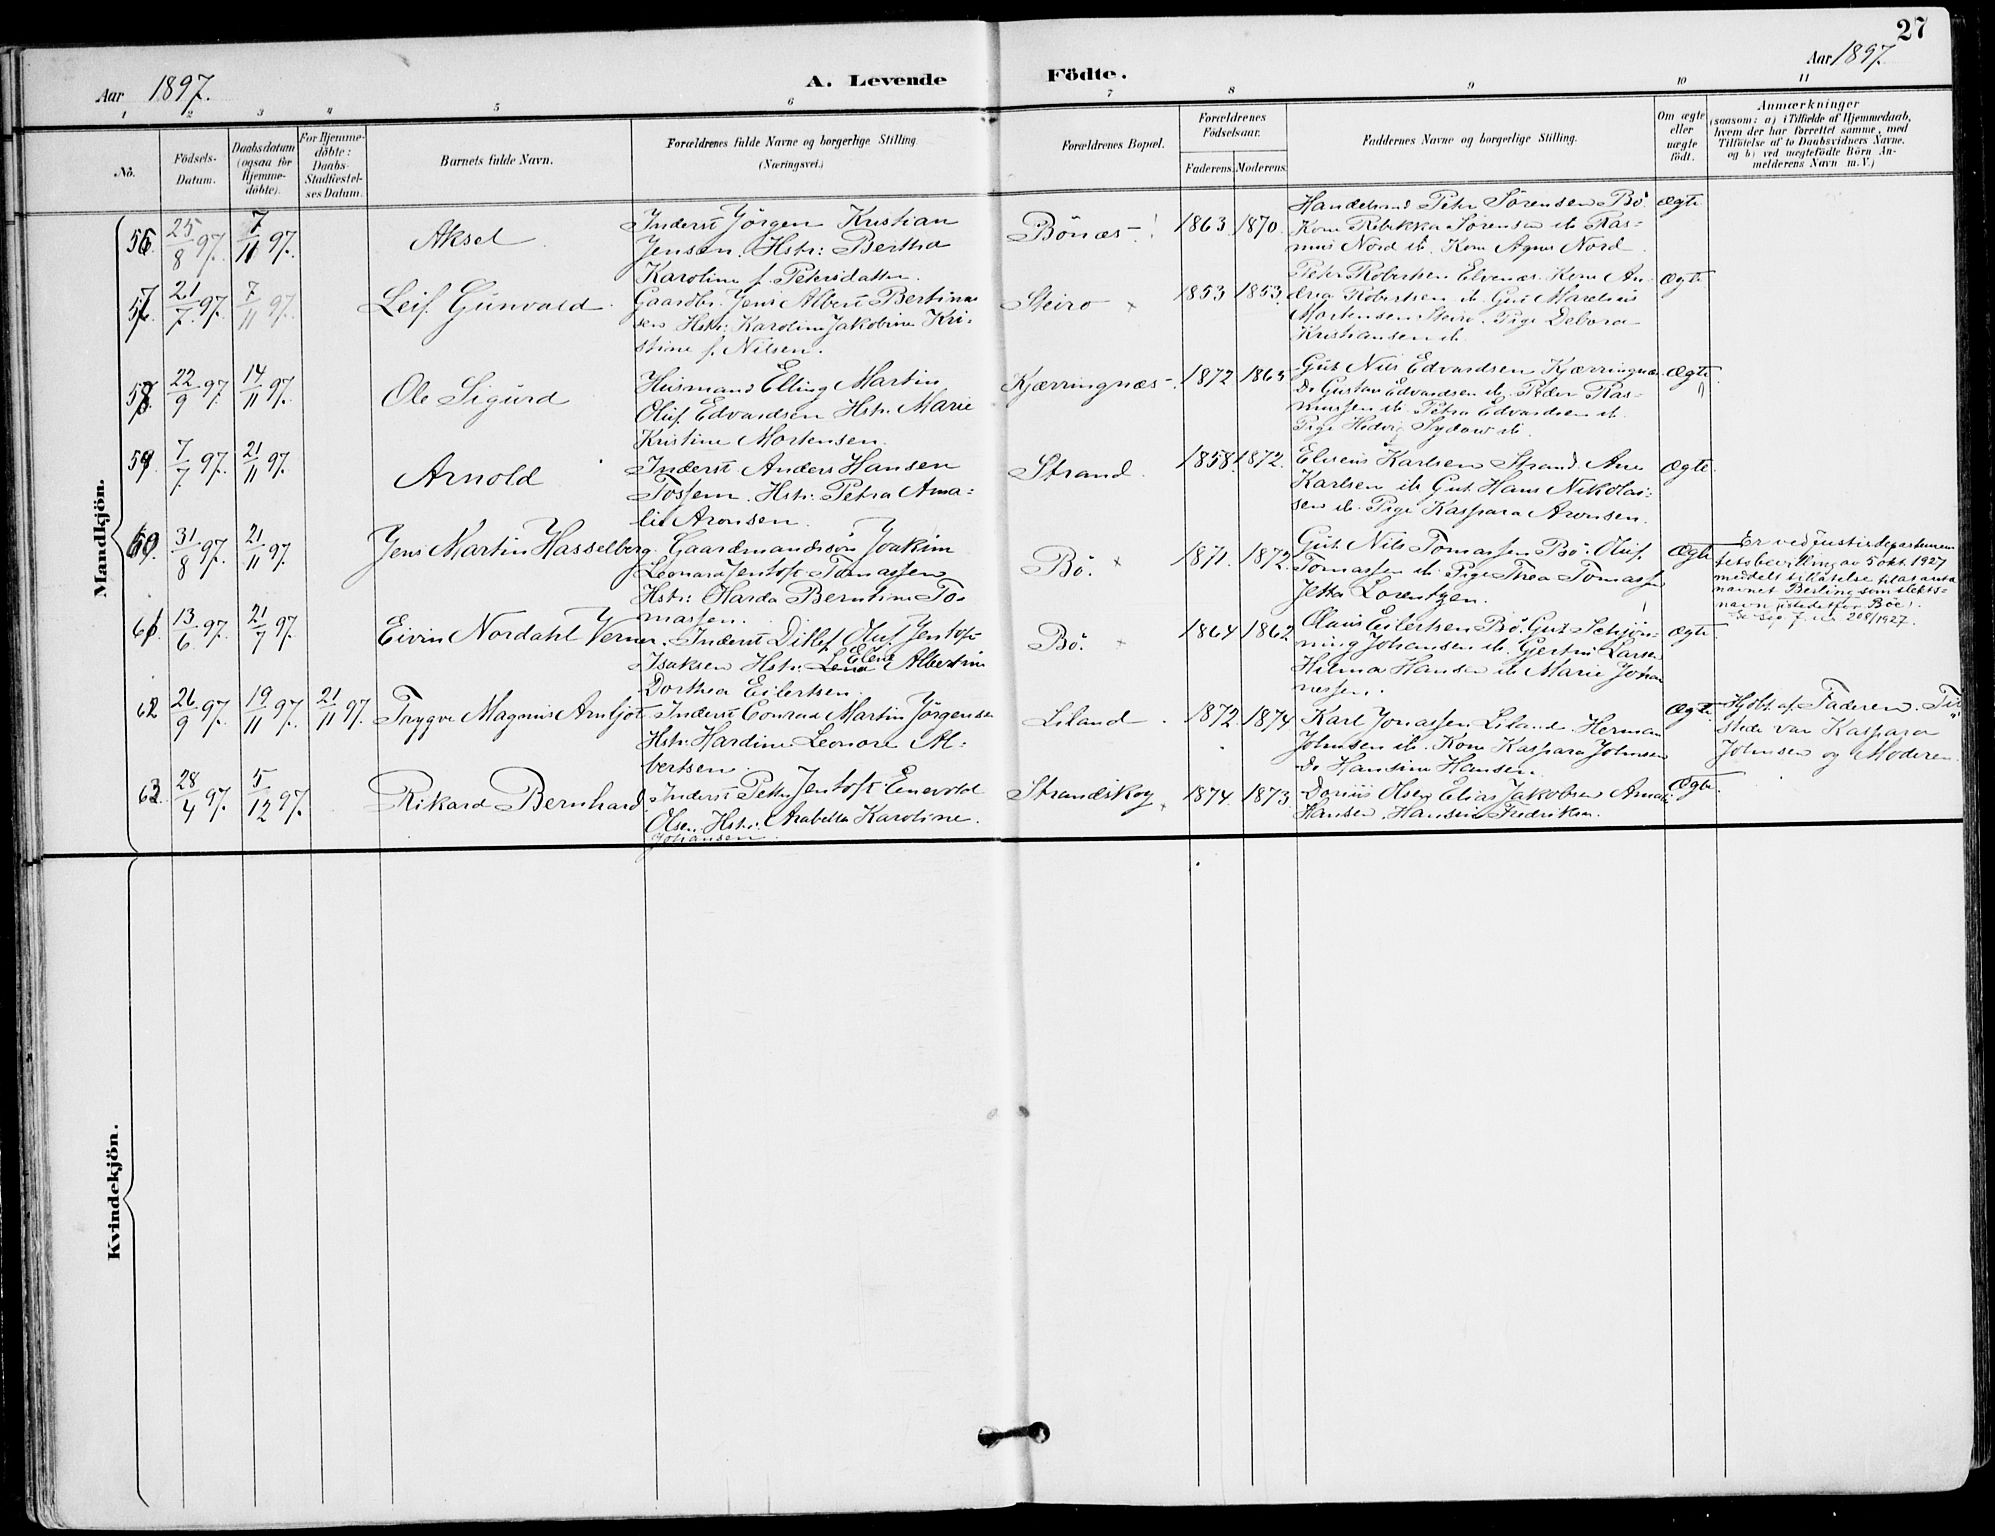 27
Aar 1897.
A. Levende Födte.
Aar 1897.
1 2 3 4 5 6 7 8 9 10 11
No.
Födsels-
Datum.
Daabsdatum
(ogsaa for
Hjemme-
döbte).
For Hjemme-
döbte:
Daabs-
Stadfæstel-
ses Datum.
Barnets fulde Navn.
Forældrenes fulde Navne og borgerlige Stilling.
(Næringsvei.)
Forældrenes Bopæl.
Forældrenes
Födselsaar.
Faderens. Moderens.
Faddernes Navne og borgerlige Stilling.
Om ægte
eller
uægte
födt.
Anmærkninger
(saasom: a) i Tilfælde af Hjemmedaab,
hvem der har forrettet samme, med
Tilföielse af to Daabsvidners Navne,
og b) ved uægtefödte Börn An-
melderens Navn m. V.)
Mandkjön.
56. 25/8 97. 7/11 97.
Aksel
Inderst Jörgen Kristian
Jensen. Hstr: Bertha
Karoline f. Petersdatter.
Bönæs
1863. 1870.
Handelsmd Peter Sörensen Bö
Kone Rebekka Sörensen ib Ras-
mus Nord ib. Kone Agnes Nord
Ægte
57. 21/7 97. 7/11 97.
Leif Gunvald.
Gaardbr. Jens Albert Bertinus
sen Hstr: Karoline Jakobine Kri-
stine f. Nilsen.
Steiro
1853 1853.
Peter Robertsen Elvenæs. Kone An-
drea Robertsen ib. Gut Marelius
Mortensen Steiro. Pige Debora
Kristiansen ib.
Ægte
58. 22/9 97. 14/11 97.
Ole Sigurd
Husmand Elling Martin
Oluf Edvardsen Hstr: Marie
Kristine Mortensen.
Kjærringnæs
1872 1865
Gut Nils Edvardsen Kjærringnæs
Do Gustav Edvardsen ib. Peder Ras-
mussen ib. Petra Edvardsen ib.
Pige Hedvig Sydow ib.
Ægte
59 7/7 97. 21/11 97.
Arnold
Inderst Anders Hansen
Tossem. Hstr: Petra Ama-
lie Aronsen.
Strand.
1858 1872.
Eliseus Karlsen Strand. Ane
Karlsen ib Gut Hans Nikolai-
sen ib. Pige Kaspara Aronsen.
Ægte.
60. 31/8 97. 21/11 97.
Jens Martin Hasselberg.
Gaardmandssön Joakim
Leonard Jentoft Tomassen
Hstr: Harda Berntine To-
massen.
Bö.
1871. 1872.
Gut Nils Tomassen Bö. Oluf
Tomassen ib. Pige Thea Tomassen
Jetta Lorentzen.
Ægte
Er ved justisdepartemen
tets bevilling av 5 okt. 1927
meddelt tillatelse til at anta
navnet Berling som slekts-
navn istedetfor Böe.
Se sig. f. nr 208/1927.
61 13/6 97. 21/7 97.
Eivin Nordahl Verner.
Inderst Ditlef Oluf Jentoft
Isaksen Hstr: Lena Elene Albertine
Dorthea Eilertsen.
Bö.
1864 1862
Olaus Eilertsen Bö. Gut Schjön-
ning Johansen ib. Gjertrui Larsen
Hilma Hansen ib Marie Johan
nessen.
Ægte.
62 26/9 97. 19/11 97. 21/11 97.
Trygve Magnus Arnljot
Inderst Conrad Martin Jörgensen
Hstr: Hardine Leonore Al-
bertsen.
Liland
1872 1874
Karl Jonassen Liland. Herman
Johnsen ib. Kone Kaspara Johnsen
Do Hansine Hansen.
Ægte.
Hjdbt. af Faderen. Til
stede var Kaspara
Johnsen og Moderen.
63. 28/4 97. 5/12 97.
Rikard Bernhard
Inderst Peter Jentoft Enevold
Olsen Hstr: Arabella Karoline.
Johansen.
Strandskog
1874. 1873.
Dorius Olsen Elias Jakobsen Amalie
Hansen. Hansine Fredriksen.
Ægte.
Kvindekjön.